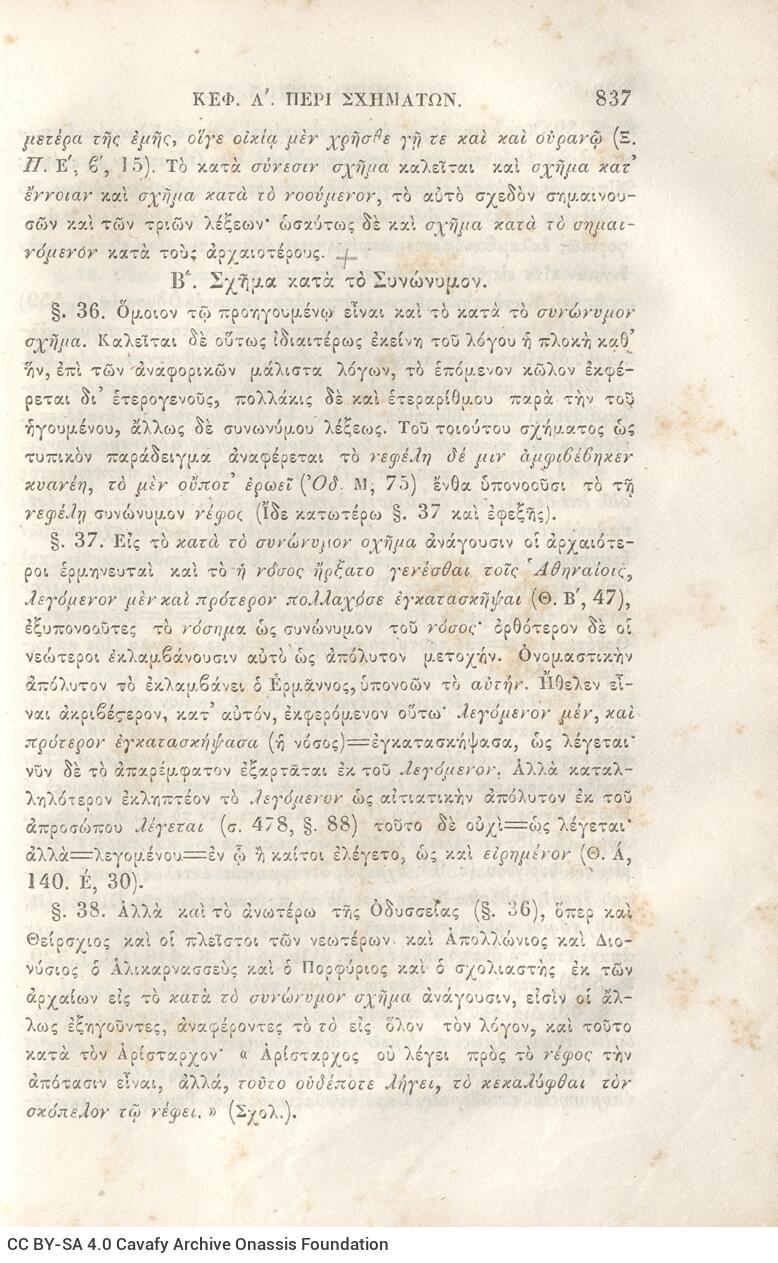 ΚΕΦ. Α΄. ΠΕΡΙ ΣΧΗΜΑΤΩΝ. 837
μετέρα τῆς ἐμῆς, οἵγε οἰκίᾳ μὲν χρῆσθε γῇ τε καὶ καὶ οὐρανῷ (Ξ.
Π. Ε΄, ϐ΄, 15). Τὸ κατὰ σύνεσιν σχῆμα καλεῖται καὶ σχῆμα κατ᾿
ἔννοιαν καὶ σχῆμα κατὰ τὸ νοούμενον, τὸ αὐτὸ σχεδὸν σημαινου-
σῶν καὶ τῶν τριῶν λέξεων· ὡσαύτως δὲ καὶ σχῆμα κατὰ τὸ σημαι-
νόμενον κατὰ τοὺς ἀρχαιοτέρους.
Β΄. Σχῆμα κατὰ τὸ Συνώνυμον.
§. 36. Ὅμοιον τῷ προηγουμένῳ εἶναι καὶ τὸ κατὰ τὸ συνώνυμον
σχῆμα. Καλεῖται δὲ οὕτως ἰδιαιτέρως ἐκείνη τοῦ λόγου ἡ πλοκὴ καθ᾿
ἥν, ἐπὶ τῶν ἀναφορικῶν μάλιστα λόγων, τὸ ἑπόμενον κῶλον ἐκφέ-
ρεται δι᾿ ἑτερογενοῦς, πολλάκις δὲ καὶ ἑτεραρίθμου παρὰ τὴν τοῦ
ἡγουμένου, ἄλλως δὲ συνωνύμου λέξεως. Τοῦ τοιούτου σχήματος ὡς
τυπικὸν παράδειγμα ἀναφέρεται τὸ νεφέλη δέ μιν ἀμφιβέβηκεν
κυανέη, τὸ μὲν οὔποτ᾿ ἐρωεῖ (Ὀδ. Μ, 75) ἔνθα ὑπονοοῦσι τὸ τῇ
νεφέλῃ συνώνυμον νέφος (Ἴδε κατωτέρω §. 37 καὶ ἐφεξῆς).
§. 37. Εἰς τὸ κατὰ τὸ συνώνυμον σχῆμα ἀνάγουσιν οἱ ἀρχαιότε-
ροι ἑρμηνευταὶ καὶ τὸ ἡ νόσος ἤρξατο γενέσθαι τοῖς Ἀθηναίοις,
λεγόμενον μὲν καὶ πρότερον πολλαχόσε ἐγκατασκῆψαι (Θ. Β΄, 47),
ἐξυπονοοῦτες τὸ νόσημα ὡς συνώνυμον τοῦ νόσος· ὀρθότερον δὲ οἱ
νεώτεροι ἐκλαμβάνουσιν αὐτὸ ὡς ἀπόλυτον μετοχήν. Ὀνομαστικὴν
ἀπόλυτον τὸ ἐκλαμβάνει ὁ Ἑρμάννος, ὑπονοῶν τὸ αὐτήν. Ἤθελεν εἶ-
ναι ἀκριβέστερον, κατ᾿ αὐτόν, ἐκφερόμενον οὕτω· λεγόμενον μέν, καὶ
πρότερον ἐγκατασκήψασα (ἡ νόσος)=ἐγκατασκήψασα, ὡς λέγεται·
νῦν δὲ τὸ ἀπαρέμφατον ἐξαρτᾶται ἐκ τοῦ λεγόμενον. Ἀλλὰ καταλ-
ληλότερον ἐκληπτέον τὸ λεγόμενον ὡς αἰτιατικὴν ἀπόλυτον ἐκ τοῦ
ἀπροσώπου λέγεται (σ. 478, §. 88) τοῦτο δὲ οὐχὶ=ὡς λέγεται·
ἀλλὰ=λεγομένου=ἐν ᾧ ἢ καίτοι ἐλέγετο, ὡς καὶ εἰρημένον (Θ. Ά,
140. Έ, 30).
§. 38. Ἀλλὰ καὶ τὸ ἀνωτέρω τῆς Ὀδυσσείας (§. 36), ὅπερ καὶ
Θείρσχιος καὶ οἱ πλεῖστοι τῶν νεωτέρων καὶ Ἀπολλώνιος καὶ Διο-
νύσιος ὁ Ἁλικαρνασσεὺς καὶ ὁ Πορφύριος καὶ ὁ σχολιαστὴς ἐκ τῶν
ἀρχαίων εἰς τὸ κατὰ τὸ συνώνυμον σχῆμα ἀνάγουσιν, εἰσὶν οἱ ἄλ-
λως ἐξηγοῦντες, ἀναφέροντες τὸ τὸ εἰς ὅλον τὸν λόγον, καὶ τοῦτο
κατὰ τὸν Ἀρίσταρχον· « Ἀρίσταρχος οὐ λέγει πρὸς τὸ νέφος τὴν
ἀπότασιν εἶναι, ἀλλά, τοῦτο οὐδέποτε λήγει, τὸ κεκαλύφθαι τὸν
σκόπελον τῷ νέφει. » (Σχολ.).
CC BY-SA 4.0 Cavafy Archive Onassis Foundation